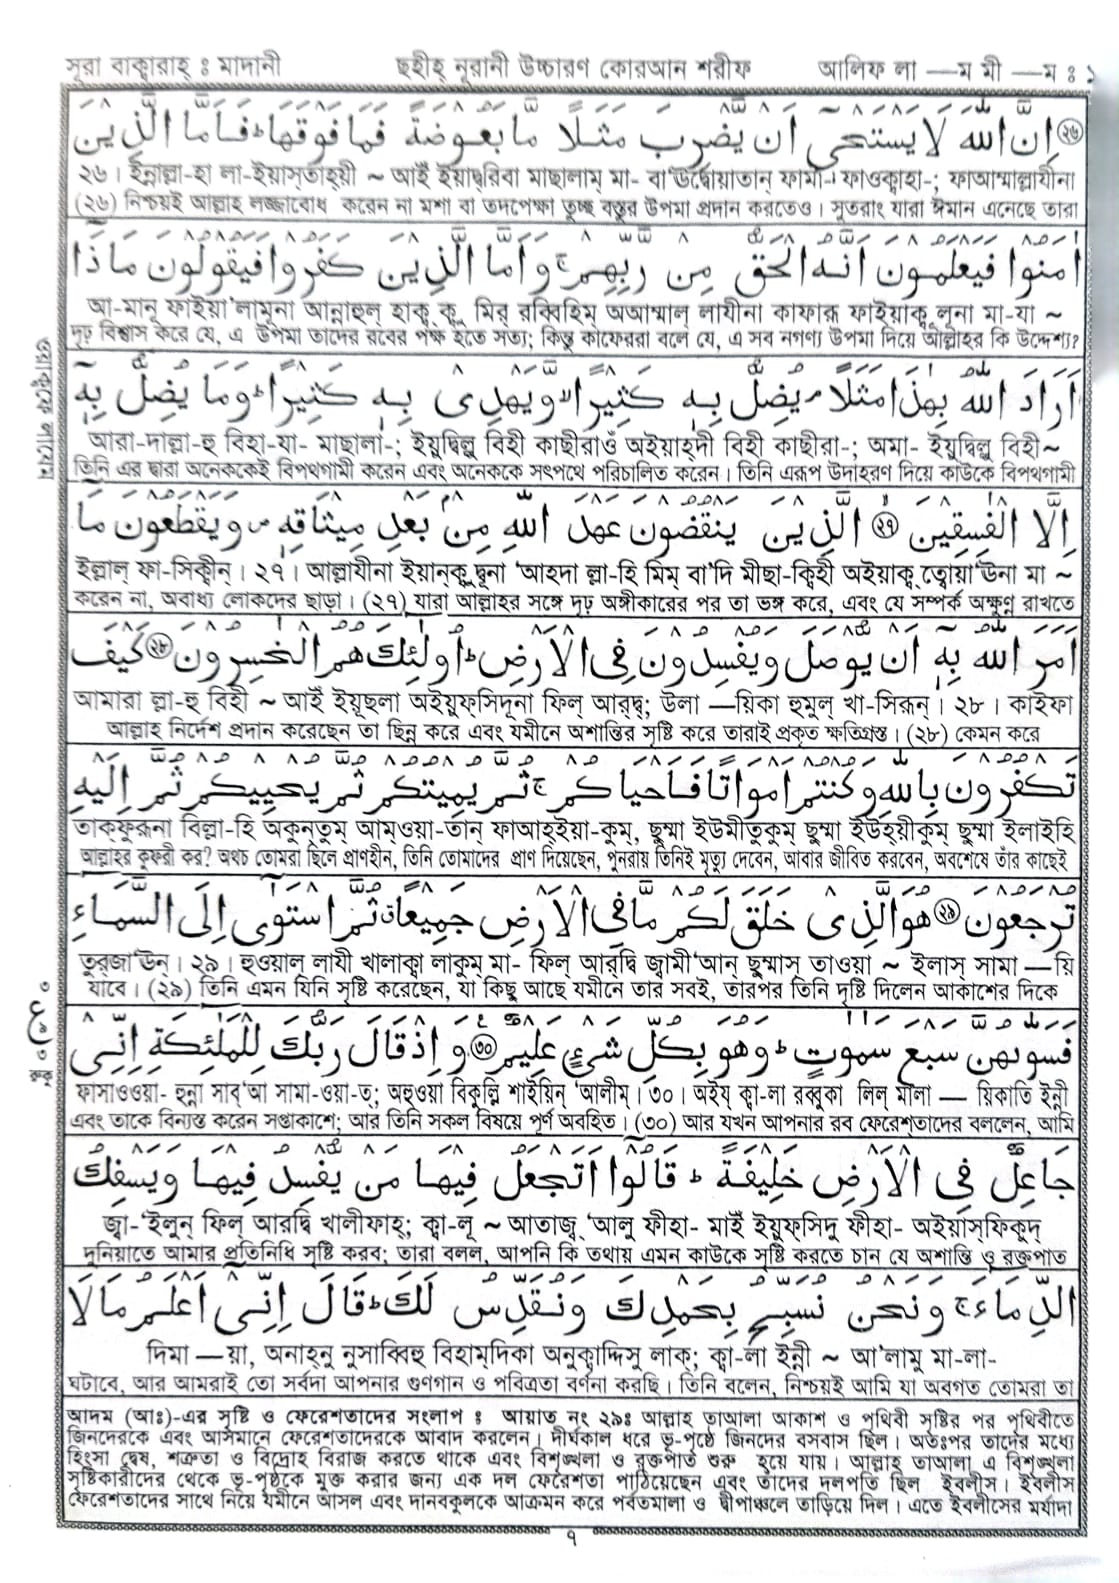 সূরা বাক্বারাহ্ ঃ মাদানী ছহীহ্ নূরানী উচ্চারণ কোরআন শরীফ আলিফ লা —ম মী —ম ঃ ১
﴿٢٦﴾ اِنَّ اللّٰهَ لَا يَسْتَحْيٖٓ اَنْ يَّضْرِبَ مَثَلًا مَّا بَعُوْضَةً فَمَا فَوْقَهَا ؕ فَاَمَّا الَّذِيْنَ
২৬। ইন্নাল্লা-হা লা-ইয়াস্তাহ্য়ী ~ আইঁ ইয়াদ্বরিবা মাছালাম্ মা- বা'ঊদ্বোয়াতান্ ফামা-। ফাওক্বাহা-; ফাআম্মাল্লাযীনা
(২৬) নিশ্চয়ই আল্লাহ লজ্জাবোধ করেন না মশা বা তদপেক্ষা তুচ্ছ বস্তুর উপমা প্রদান করতেও। সুতরাং যারা ঈমান এনেছে তারা
اٰمَنُوْا فَيَعْلَمُوْنَ اَنَّهُ الْحَقُّ مِنْ رَّبِّهِمْ ۚ وَاَمَّا الَّذِيْنَ كَفَرُوْا فَيَقُوْلُوْنَ مَاذَآ
আ-মানূ ফাইয়া'লামূনা আন্নাহুল্ হাক্ব্ ক্বু মির্ রব্বিহিম্ অআম্মাল্ লাযীনা কাফারূ ফাইয়াক্বূ লূনা মা-যা ~
দৃঢ় বিশ্বাস করে যে, এ উপমা তাদের রবের পক্ষ হতে সত্য; কিন্তু কাফেররা বলে যে, এ সব নগণ্য উপমা দিয়ে আল্লাহর কি উদ্দেশ্য?
اَرَادَ اللّٰهُ بِهٰذَا مَثَلًا ۘ يُضِلُّ بِهٖ كَثِيْرًا ۙ وَّيَهْدِيْ بِهٖ كَثِيْرًا ؕ وَمَا يُضِلُّ بِهٖٓ
আরা-দাল্লা-হু বিহা-যা- মাছালা-; ইয়ুদ্বিল্লু বিহী কাছীরাওঁ অইয়াহ্দী বিহী কাছীরা-; অমা- ইয়ুদ্বিল্লু বিহী~
তিনি এর দ্বারা অনেককেই বিপথগামী করেন এবং অনেককে সৎপথে পরিচালিত করেন। তিনি এরূপ উদাহরণ দিয়ে কাউকে বিপথগামী
اِلَّا الْفٰسِقِيْنَ ﴿٢٧﴾ الَّذِيْنَ يَنْقُضُوْنَ عَهْدَ اللّٰهِ مِنْۢ بَعْدِ مِيْثَاقِهٖ ۪ وَيَقْطَعُوْنَ مَآ
ইল্লাল্ ফা-সিক্বীন্। ২৭। আল্লাযীনা ইয়ান্কুদ্বূনা 'আহদা ল্লা-হি মিম্ বা'দি মীছা-ক্বিহী অইয়াক্ব্ ত্বোয়া'ঊনা মা ~
করেন না, অবাধ্য লোকদের ছাড়া। (২৭) যারা আল্লাহর সঙ্গে দৃঢ় অঙ্গীকারের পর তা ভঙ্গ করে, এবং যে সম্পর্ক অক্ষুণ্ন রাখতে
اَمَرَ اللّٰهُ بِهٖٓ اَنْ يُّوْصَلَ وَيُفْسِدُوْنَ فِي الْاَرْضِ ؕ اُولٰٓئِكَ هُمُ الْخٰسِرُوْنَ ﴿٢٨﴾ كَيْفَ
আমারা ল্লা-হু বিহী ~ আইঁ ইয়ূছলা অইয়ুফ্সিদূনা ফিল্ আরদ্ব্; উলা —য়িকা হুমুল্ খা-সিরূন্। ২৮। কাইফা
আল্লাহ নির্দেশ প্রদান করেছেন তা ছিন্ন করে এবং যমীনে অশান্তির সৃষ্টি করে তারাই প্রকৃত ক্ষতিগ্রস্ত। (২৮) কেমন করে
تَكْفُرُوْنَ بِاللّٰهِ وَكُنْتُمْ اَمْوَاتًا فَاَحْيَاكُمْ ۚ ثُمَّ يُمِيْتُكُمْ ثُمَّ يُحْيِيْكُمْ ثُمَّ اِلَيْهِ
তাক্ফুরূনা বিল্লা-হি অকুন্তুম্ আম্ওয়া-তান্ ফাআহ্ইয়া-কুম্, ছুম্মা ইউমীতুকুম্ ছুম্মা ইউহ্য়ীকুম্ ছুম্মা ইলাইহি
আল্লাহর কুফরী কর? অথচ তোমরা ছিলে প্রাণহীন, তিনি তোমাদের প্রাণ দিয়েছেন, পুনরায় তিনিই মৃত্যু দেবেন, আবার জীবিত করবেন, অবশেষে তাঁর কাছেই
تُرْجَعُوْنَ ﴿٢٩﴾ هُوَ الَّذِيْ خَلَقَ لَكُمْ مَّا فِي الْاَرْضِ جَمِيْعًا ۗ ثُمَّ اسْتَوٰٓى اِلَى السَّمَآءِ
তুরজা'ঊন্। ২৯। হুওয়াল্ লাযী খালাক্বা লাকুম্ মা- ফিল্ আরদ্বি জ্বামী'আন্ ছুম্মাস্ তাওয়া ~ ইলাস্ সামা —য়ি
যাবে। (২৯) তিনি এমন যিনি সৃষ্টি করেছেন, যা কিছু আছে যমীনে তার সবই, তারপর তিনি দৃষ্টি দিলেন আকাশের দিকে
فَسَوّٰىهُنَّ سَبْعَ سَمٰوٰتٍ ؕ وَهُوَ بِكُلِّ شَيْءٍ عَلِيْمٌ ﴿٣٠﴾ وَاِذْ قَالَ رَبُّكَ لِلْمَلٰٓئِكَةِ اِنِّيْ
ফাসাওওয়া- হুন্না সাব্'আ সামা-ওয়া-ত্; অহুওয়া বিকুল্লি শাইয়িন্ 'আলীম্। ৩০। অইয্ ক্বা-লা রব্বুকা লিল্ মালা — য়িকাতি ইন্নী
এবং তাকে বিন্যস্ত করেন সপ্তাকাশে; আর তিনি সকল বিষয়ে পূর্ণ অবহিত। (৩০) আর যখন আপনার রব ফেরেশ্তাদের বললেন, আমি
جَاعِلٌ فِي الْاَرْضِ خَلِيْفَةً ؕ قَالُوْٓا اَتَجْعَلُ فِيْهَا مَنْ يُّفْسِدُ فِيْهَا وَيَسْفِكُ
জ্বা-'ইলুন্ ফিল্ আরদ্বি খালীফাহ্; ক্বা-লূ ~ আতাজ্ব্ 'আলু ফীহা- মাইঁ ইয়ুফ্সিদু ফীহা- অইয়াস্ফিকুদ্
দুনিয়াতে আমার প্রতিনিধি সৃষ্টি করব; তারা বলল, আপনি কি তথায় এমন কাউকে সৃষ্টি করতে চান যে অশান্তি ও রক্তপাত
الدِّمَآءَ ۚ وَنَحْنُ نُسَبِّحُ بِحَمْدِكَ وَنُقَدِّسُ لَكَ ؕ قَالَ اِنِّيْٓ اَعْلَمُ مَا لَا
দিমা —য়া, অনাহ্নু নুসাব্বিহু বিহাম্দিকা অনুক্বাদ্দিসু লাক্; ক্বা-লা ইন্নী ~ আ'লামু মা-লা-
ঘটাবে, আর আমরাই তো সর্বদা আপনার গুণগান ও পবিত্রতা বর্ণনা করছি। তিনি বলেন, নিশ্চয়ই আমি যা অবগত তোমরা তা
আদম (আঃ)-এর সৃষ্টি ও ফেরেশতাদের সংলাপ ঃ আয়াত নং ২৯ঃ আল্লাহ তাআলা আকাশ ও পৃথিবী সৃষ্টির পর পৃথিবীতে
জিনদেরকে এবং আসমানে ফেরেশতাদেরকে আবাদ করলেন। দীর্ঘকাল ধরে ভূ-পৃষ্ঠে জিনদের বসবাস ছিল। অতঃপর তাদের মধ্যে
হিংসা দ্বেষ, শত্রুতা ও বিদ্রোহ বিরাজ করতে থাকে এবং বিশৃঙ্খলা ও রক্তপাত শুরু হয়ে যায়। আল্লাহ তাআলা এ বিশৃঙ্খলা
সৃষ্টিকারীদের থেকে ভূ-পৃষ্ঠকে মুক্ত করার জন্য এক দল ফেরেশতা পাঠিয়েছেন এবং তাদের দলপতি ছিল ইবলীস। ইবলীস
ফেরেশতাদের সাথে নিয়ে যমীনে আসল এবং দানবকুলকে আক্রমন করে পর্বতমালা ও দ্বীপাঞ্চলে তাড়িয়ে দিল। এতে ইবলীসের মর্যাদা
৭
ওয়াক্বফে লাযেম